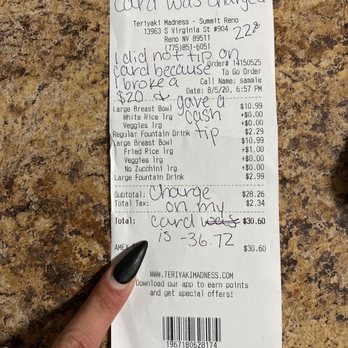 card was charged
Teriyaki Madness - Summit Reno
13963 S Virginia St #904
Reno NV 89511
(775)851-6051
I did not tip on
Order# 14150525
card because To Go Order
I broke a Call Name: sammie
Date: 8/5/20, 6:57 PM
$20 & gave a
Large Breast Bowl $10.99
cash
White Rice lrg +$0.00
Veggies lrg +$0.00
Regular Fountain Drink $2.29
tip
Large Breast Bowl $10.99
Fried Rice lrg +$1.00
Veggies lrg +$0.00
No Zucchini lrg +$0.00
Large Fountain Drink $2.99
Charge
Subtotal: $28.26
Total Tax: $2.34
on my
Total: $30.60
card was
is -36.72
AMEX $30.60
WWW.TERIYAKIMADNESS.COM
Download our app to earn points
and get special offers!
1967180628174